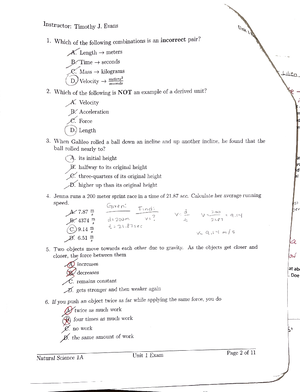 Instructor: Timothy J. Evans
1. Which of the following combinations is an incorrect pair?
A. Length → meters
B. Time → seconds
C. Mass → kilograms
D. Velocity →
2. Which of the following is NOT an example of a derived unit?
A. Velocity
B. Acceleration
C. Force
D. Length
3. When Galileo rolled a ball down an incline and up another incline, he found that the
ball rolled nearly to?
A. its initial height
B. halfway to its original height
C. three-quarters of its original height
D. higher than its original height
4. Jenna runs a 200 meter sprint race in a time of 21.87 sec. Calculate her average running
speed.
A. 7.87 m/s
B. 4374 m/s
C. 9.14 m/s
D. 6.51 m/s
Given:
Find:
d = 200m
v = ?
t = 21.87 sec
5. Two objects move towards each other due to gravity. As the objects get closer and
closer, the force between them
A. increases
B. decreases
C. remains constant
D. gets stronger and then weaker again
6. If you push an object twice as far while applying the same force, you do
A. twice as much work
B. four times as much work
C. no work
D. the same amount of work
Natural Science 1A
Unit 1 Exam
Page 2 of 11